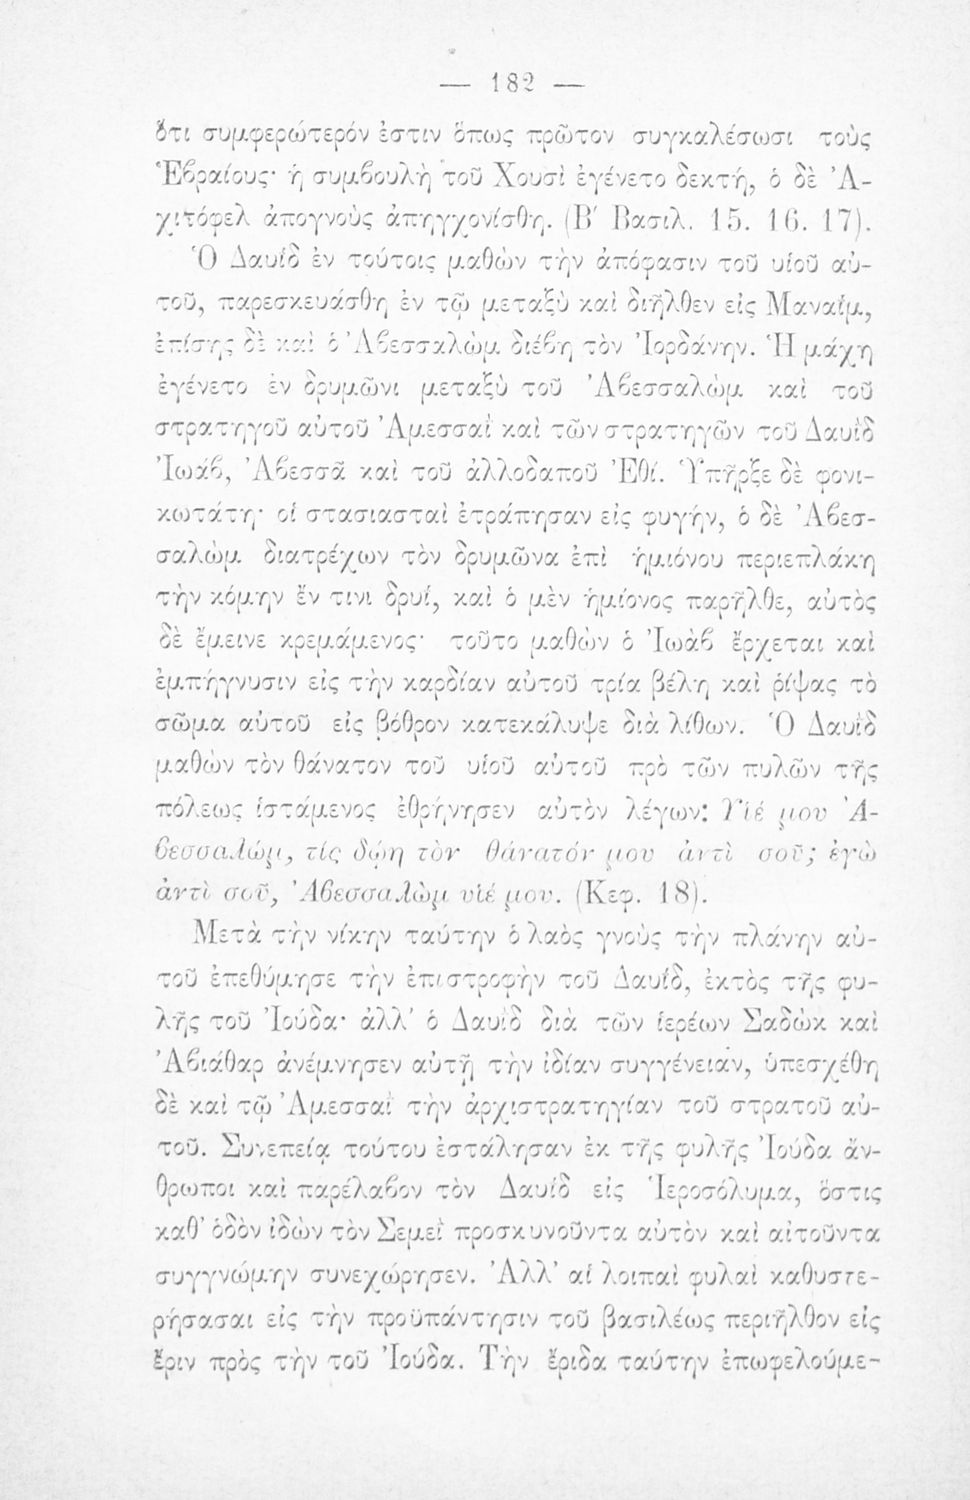 — 182 —
ὅτι συμφερώτερόν ἐστιν ὅπως πρῶτον συγκαλέσωσι τοὺς
Ἑβραίους· ἡ συμβουλὴ τοῦ Χουσὶ ἐγένετο δεκτή, ὁ δὲ Ἀ-
χιτόφελ ἀπογνοὺς ἀπηγχονίσθη. (Β′ Βασιλ. 15. 16. 17).
Ὁ Δαυὶδ ἐν τούτοις μαθὼν τὴν ἀπόφασιν τοῦ υἱοῦ αὐ-
τοῦ, παρεσκευάσθη ἐν τῷ μεταξὺ καὶ διῆλθεν εἰς Μαναΐμ,
ἐπίσης δὲ καὶ ὁ Ἀβεσσαλὼμ διέβη τὸν Ἰορδάνην. Ἡ μάχη
ἐγένετο ἐν δρυμῶνι μεταξὺ τοῦ Ἀβεσσαλὼμ καὶ τοῦ
στρατηγοῦ αὐτοῦ Ἀμεσσαῒ καὶ τῶν στρατηγῶν τοῦ Δαυὶδ
Ἰωάβ, Ἀβεσσᾶ καὶ τοῦ ἀλλοδαποῦ Ἐθί. Ὑπῆρξε δὲ φονι-
κωτάτη· οἱ στασιασταὶ ἐτράπησαν εἰς φυγήν, ὁ δὲ Ἀβεσ-
σαλὼμ διατρέχων τὸν δρυμῶνα ἐπὶ ἡμιόνου περιεπλάκη
τὴν κόμην ἔν τινι δρυΐ, καὶ ὁ μὲν ἡμίονος παρῆλθε, αὐτὸς
δὲ ἔμεινε κρεμάμενος· τοῦτο μαθὼν ὁ Ἰωὰβ ἔρχεται καὶ
ἐμπήγνυσιν εἰς τὴν καρδίαν αὐτοῦ τρία βέλη καὶ ῥίψας τὸ
σῶμα αὐτοῦ εἰς βόθρον κατεκάλυψε διὰ λίθων. Ὁ Δαυὶδ
μαθὼν τὸν θάνατον τοῦ υἱοῦ αὐτοῦ πρὸ τῶν πυλῶν τῆς
πόλεως ἱστάμενος ἐθρήνησεν αὐτὸν λέγων: Υἱέ μου Ἀ-
βεσσαλώμ, τίς δῴη τὸν θάνατόν μου ἀντὶ σοῦ; ἐγὼ
ἀντὶ σοῦ, Ἀβεσσαλὼμ υἱέ μου. (Κεφ. 18).
Μετὰ τὴν νίκην ταύτην ὁ λαὸς γνοὺς τὴν πλάνην αὐ-
τοῦ ἐπεθύμησε τὴν ἐπιστροφὴν τοῦ Δαυΐδ, ἐκτὸς τῆς φυ-
λῆς τοῦ Ἰούδα· ἀλλ' ὁ Δαυὶδ διὰ τῶν ἱερέων Σαδὼκ καὶ
Ἀβιάθαρ ἀνέμνησεν αὐτῇ τὴν ἰδίαν συγγένειαν, ὑπεσχέθη
δὲ καὶ τῷ Ἀμεσσαῒ τὴν ἀρχιστρατηγίαν τοῦ στρατοῦ αὐ-
τοῦ. Συνεπείᾳ τούτου ἐστάλησαν ἐκ τῆς φυλῆς Ἰούδα ἄν-
θρωποι καὶ παρέλαβον τὸν Δαυὶδ εἰς Ἱεροσόλυμα, ὅστις
καθ' ὁδὸν ἰδὼν τὸν Σεμεῒ προσκυνοῦντα αὐτὸν καὶ αἰτοῦντα
συγγνώμην συνεχώρησεν. Ἀλλ' αἱ λοιπαὶ φυλαὶ καθυστε-
ρήσασαι εἰς τὴν προϋπάντησιν τοῦ βασιλέως περιῆλθον εἰς
ἔριν πρὸς τὴν τοῦ Ἰούδα. Τὴν ἔριδα ταύτην ἐπωφελούμε-